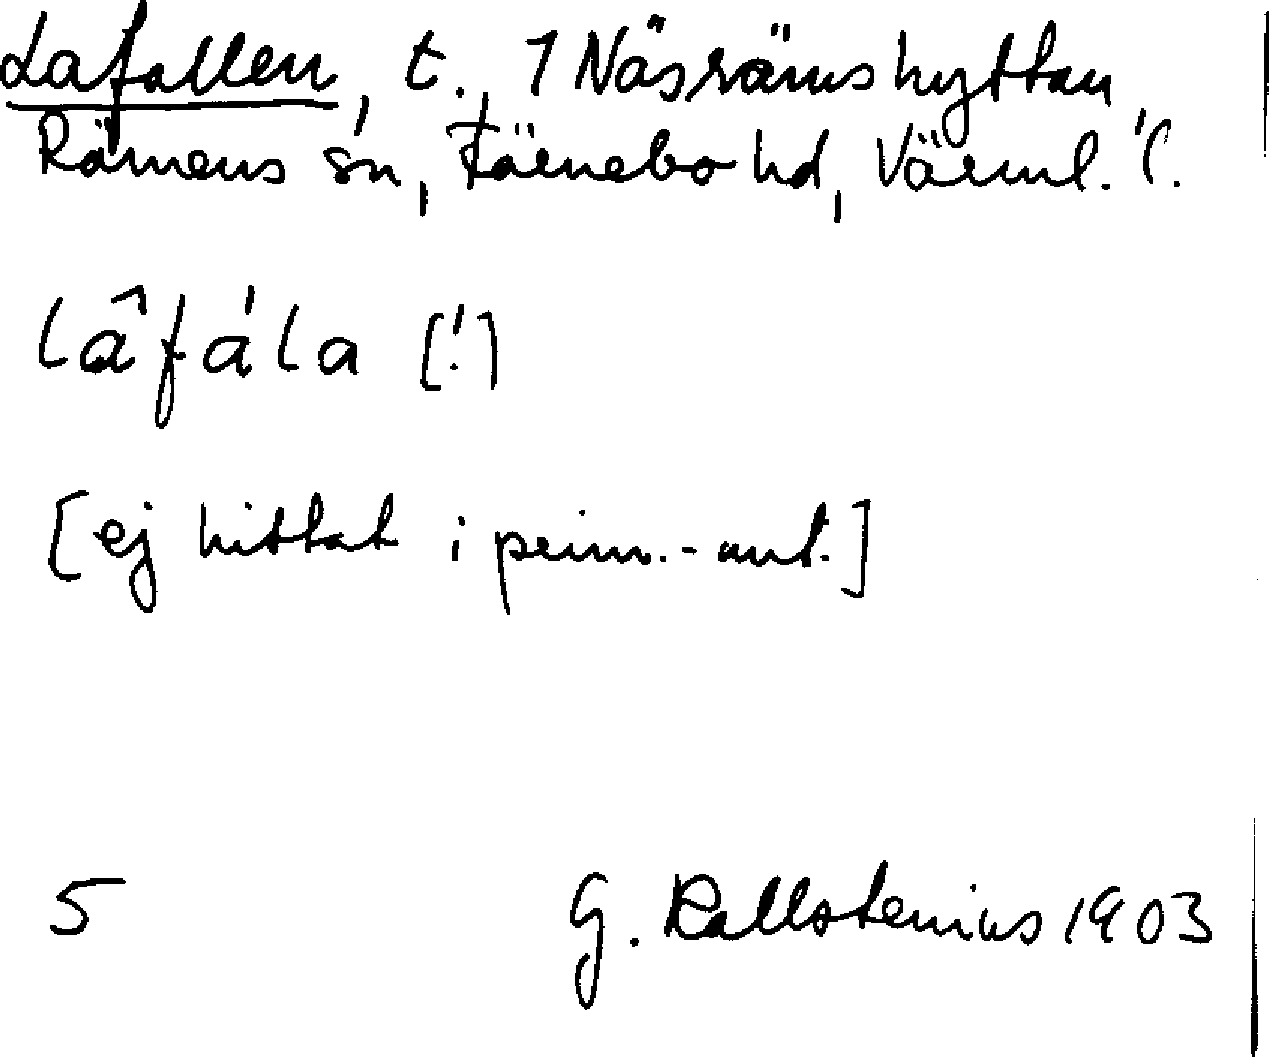 Lafallen, t., 1 Näsrämshyttan,
Rämens sn, Färnebo hd, Värml. l.
lâfála [!]
[ej hittat i prim.-ant.]
5 G. Kallstenius 1903